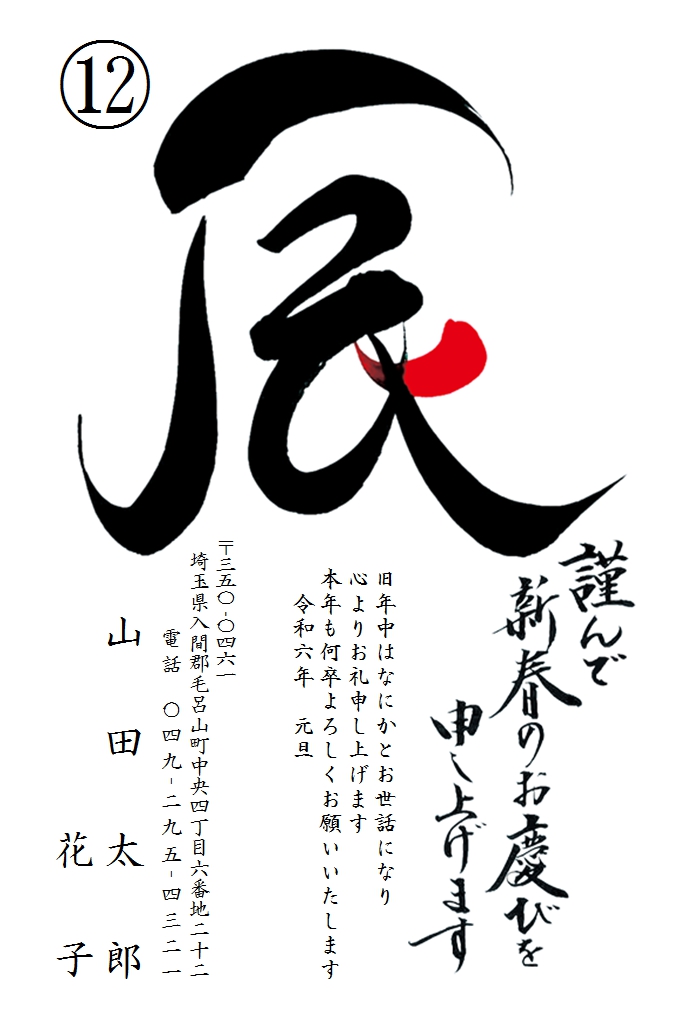 ⑫
辰
謹んで
新春のお慶びを
申し上げます
旧年中はなにかとお世話になり
心よりお礼申し上げます
本年も何卒よろしくお願いいたします
令和六年 元旦
〒三五〇-〇四六一
埼玉県入間郡毛呂山町中央四丁目六番地二十二
電話 〇四九-二九五-四三二一
山田太郎
花子